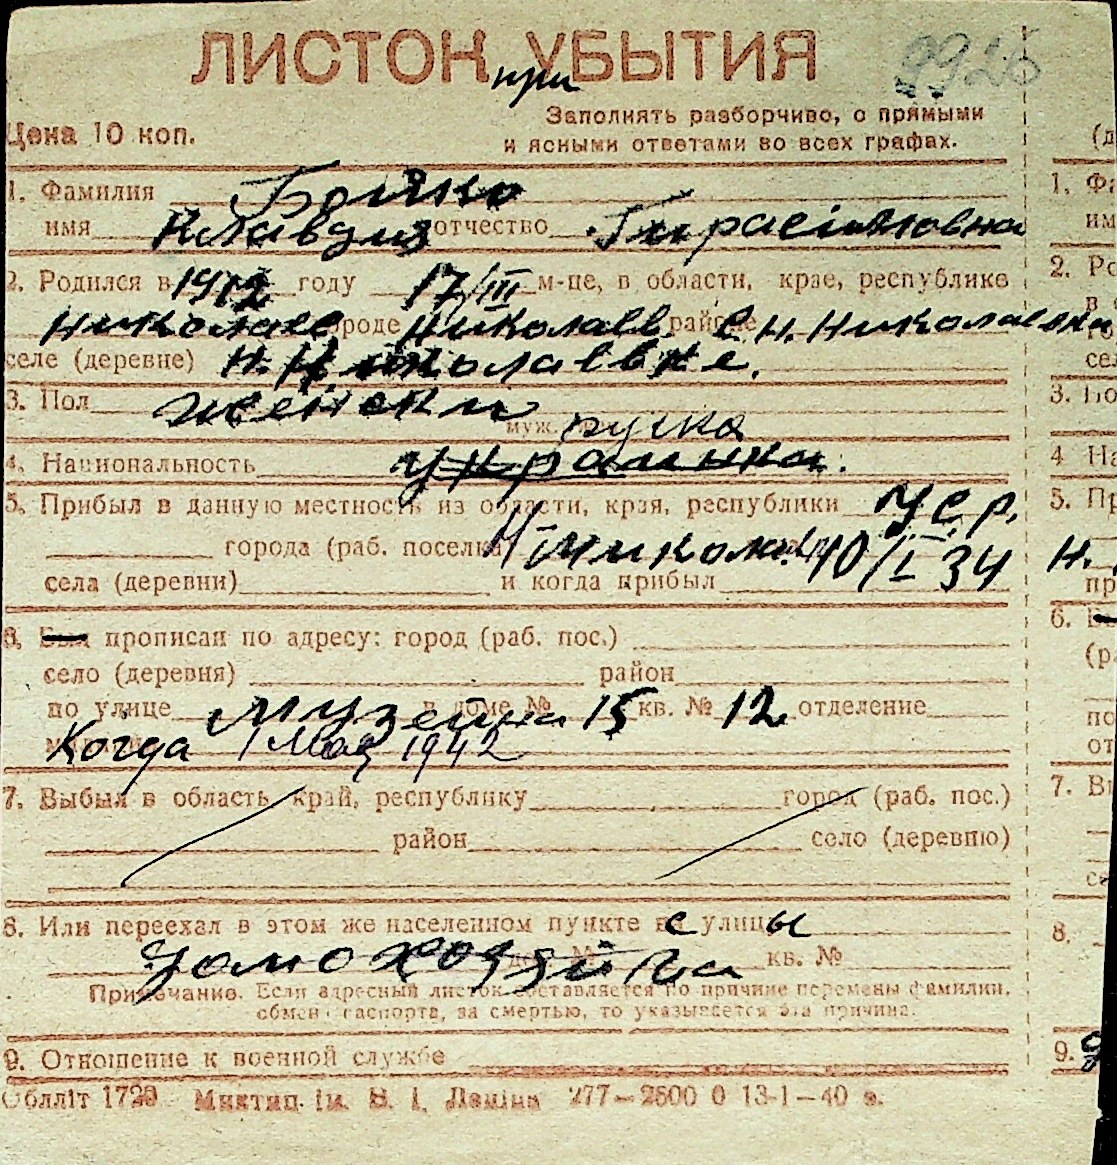 ЛИСТОК УБЫТИЯ 9926
при
Заполнять разборчиво, с прямыми
Цена 10 коп. и ясными ответами во всех графах.
1. Фамилия Бойко
имя Клавдия отчество Гирасімовна
2. Родился в 1912 году 17/III м-це, в области, крае, республике
Николаев городе Николаев районе с. Н. Николаевка
селе (деревне) Н. Николаевке.
3. Пол женски
муж.
4. Национальность украинка.
5. Прибыл в данную местность из области, края, республики УСР,
города (раб. поселка) 10/I 34
села (деревни) и когда прибыл
6. Был прописан по адресу: город (раб. пос.)
село (деревня) район
по улице Музейна в доме № 15 кв. № 12 отделение
Когда 1 Мая 1942
7. Выбыл в область, край, республику город (раб. пос.)
район село (деревню)
8. Или переехал в этом же населенном пункте с улицы
домохозяйка кв. №
Примечание. Если адресный листок составляется по причине перемены фамилии,
обмена паспорта, за смертью, то указывается эта причина.
9. Отношение к военной службе
Обллiт 1729 Миктип. iм. В. І. Ленiна 277—2500 0 13-1—40 з.